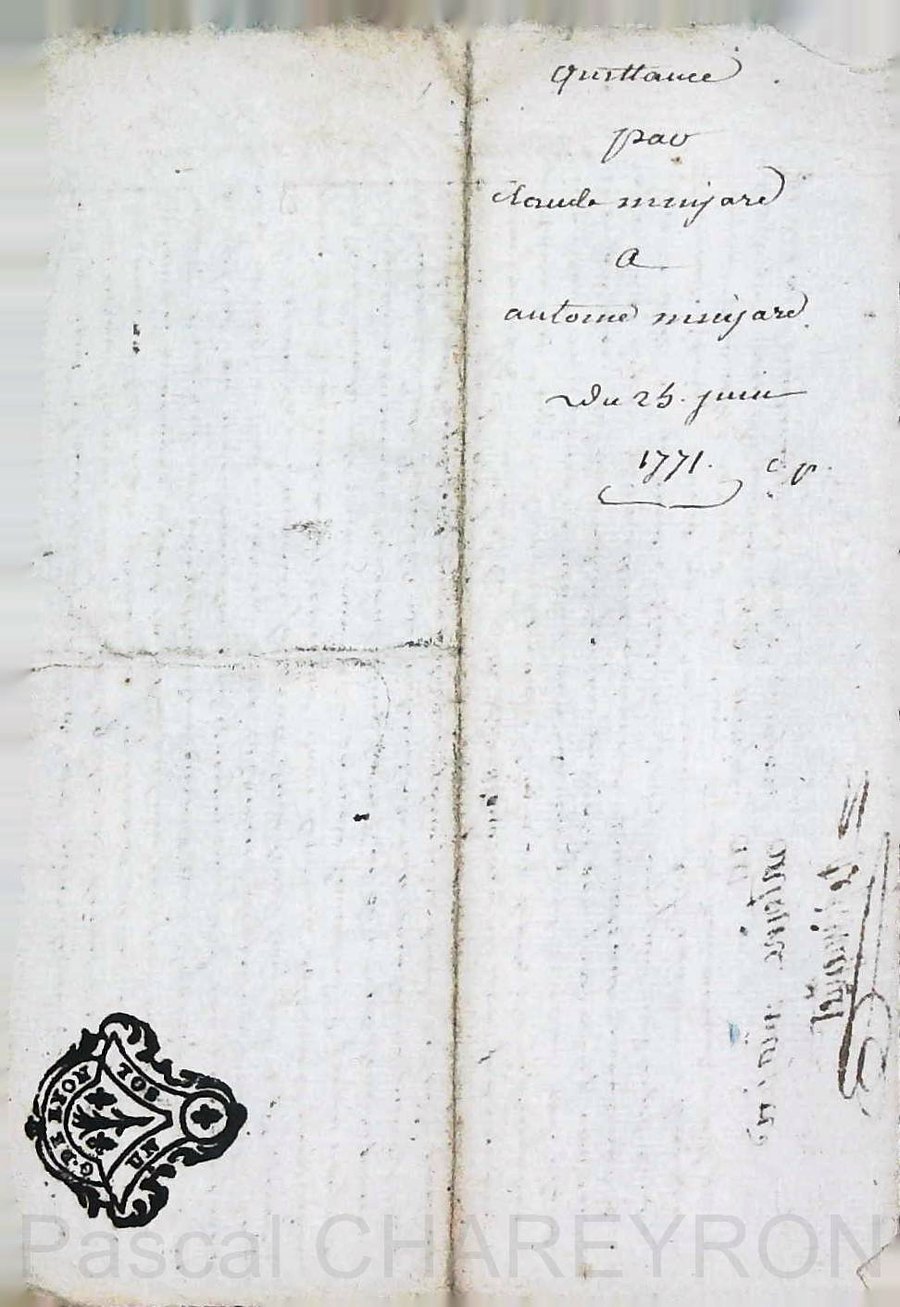 quittance
par
claude minjard
a
antoine minjard
du 25 juin
1771. c. p.
G. DE LYON
UN SOL
Pascal CHAREYRON